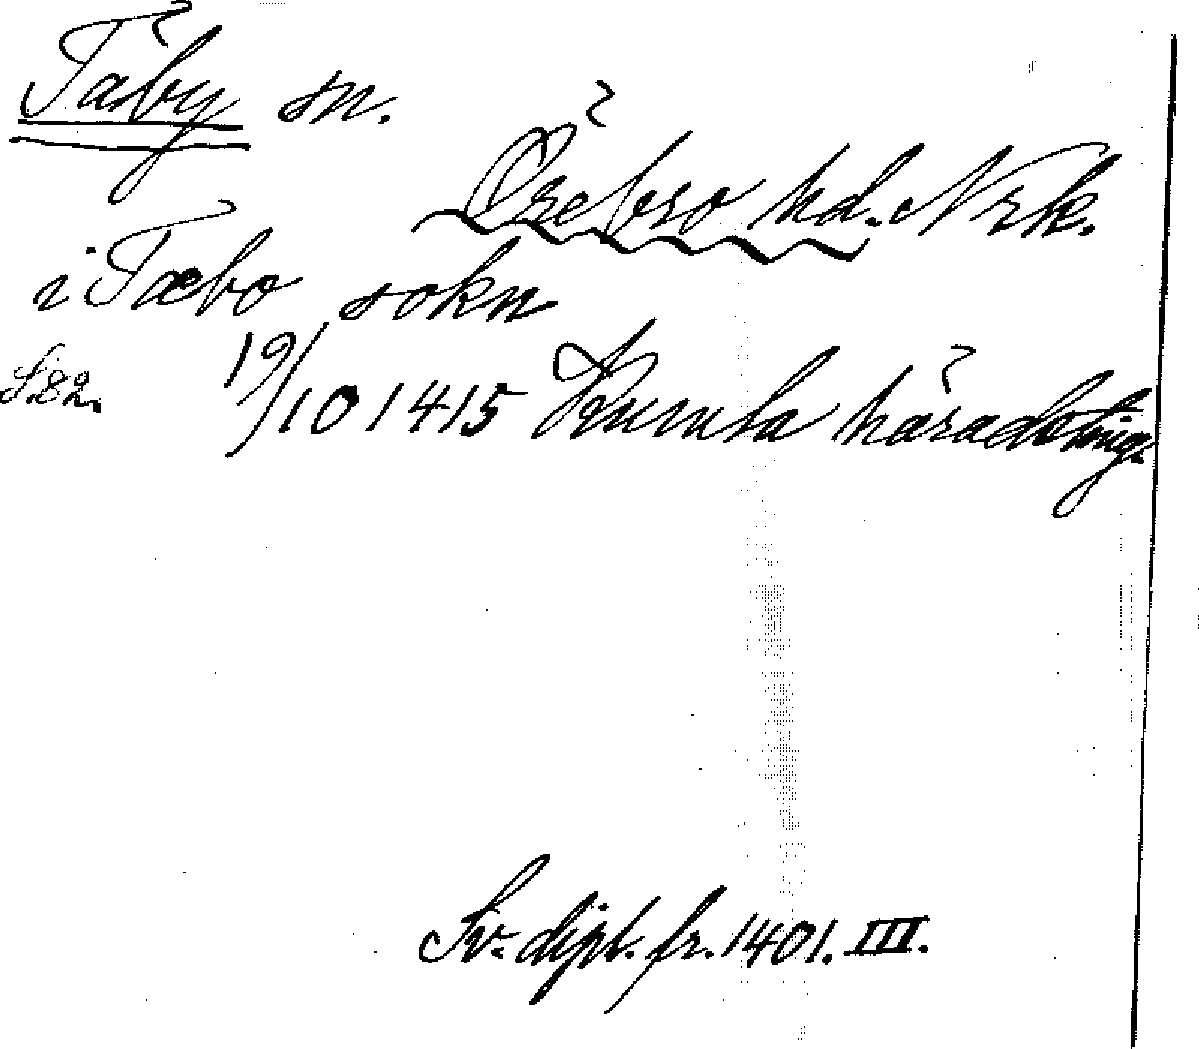 Täby sn.
Örebro hd. Nrk.
i Tæbo sokn
S. 82. 19/10 1415 Kumla häradsting.
Sv. dipl. fr. 1401. III.